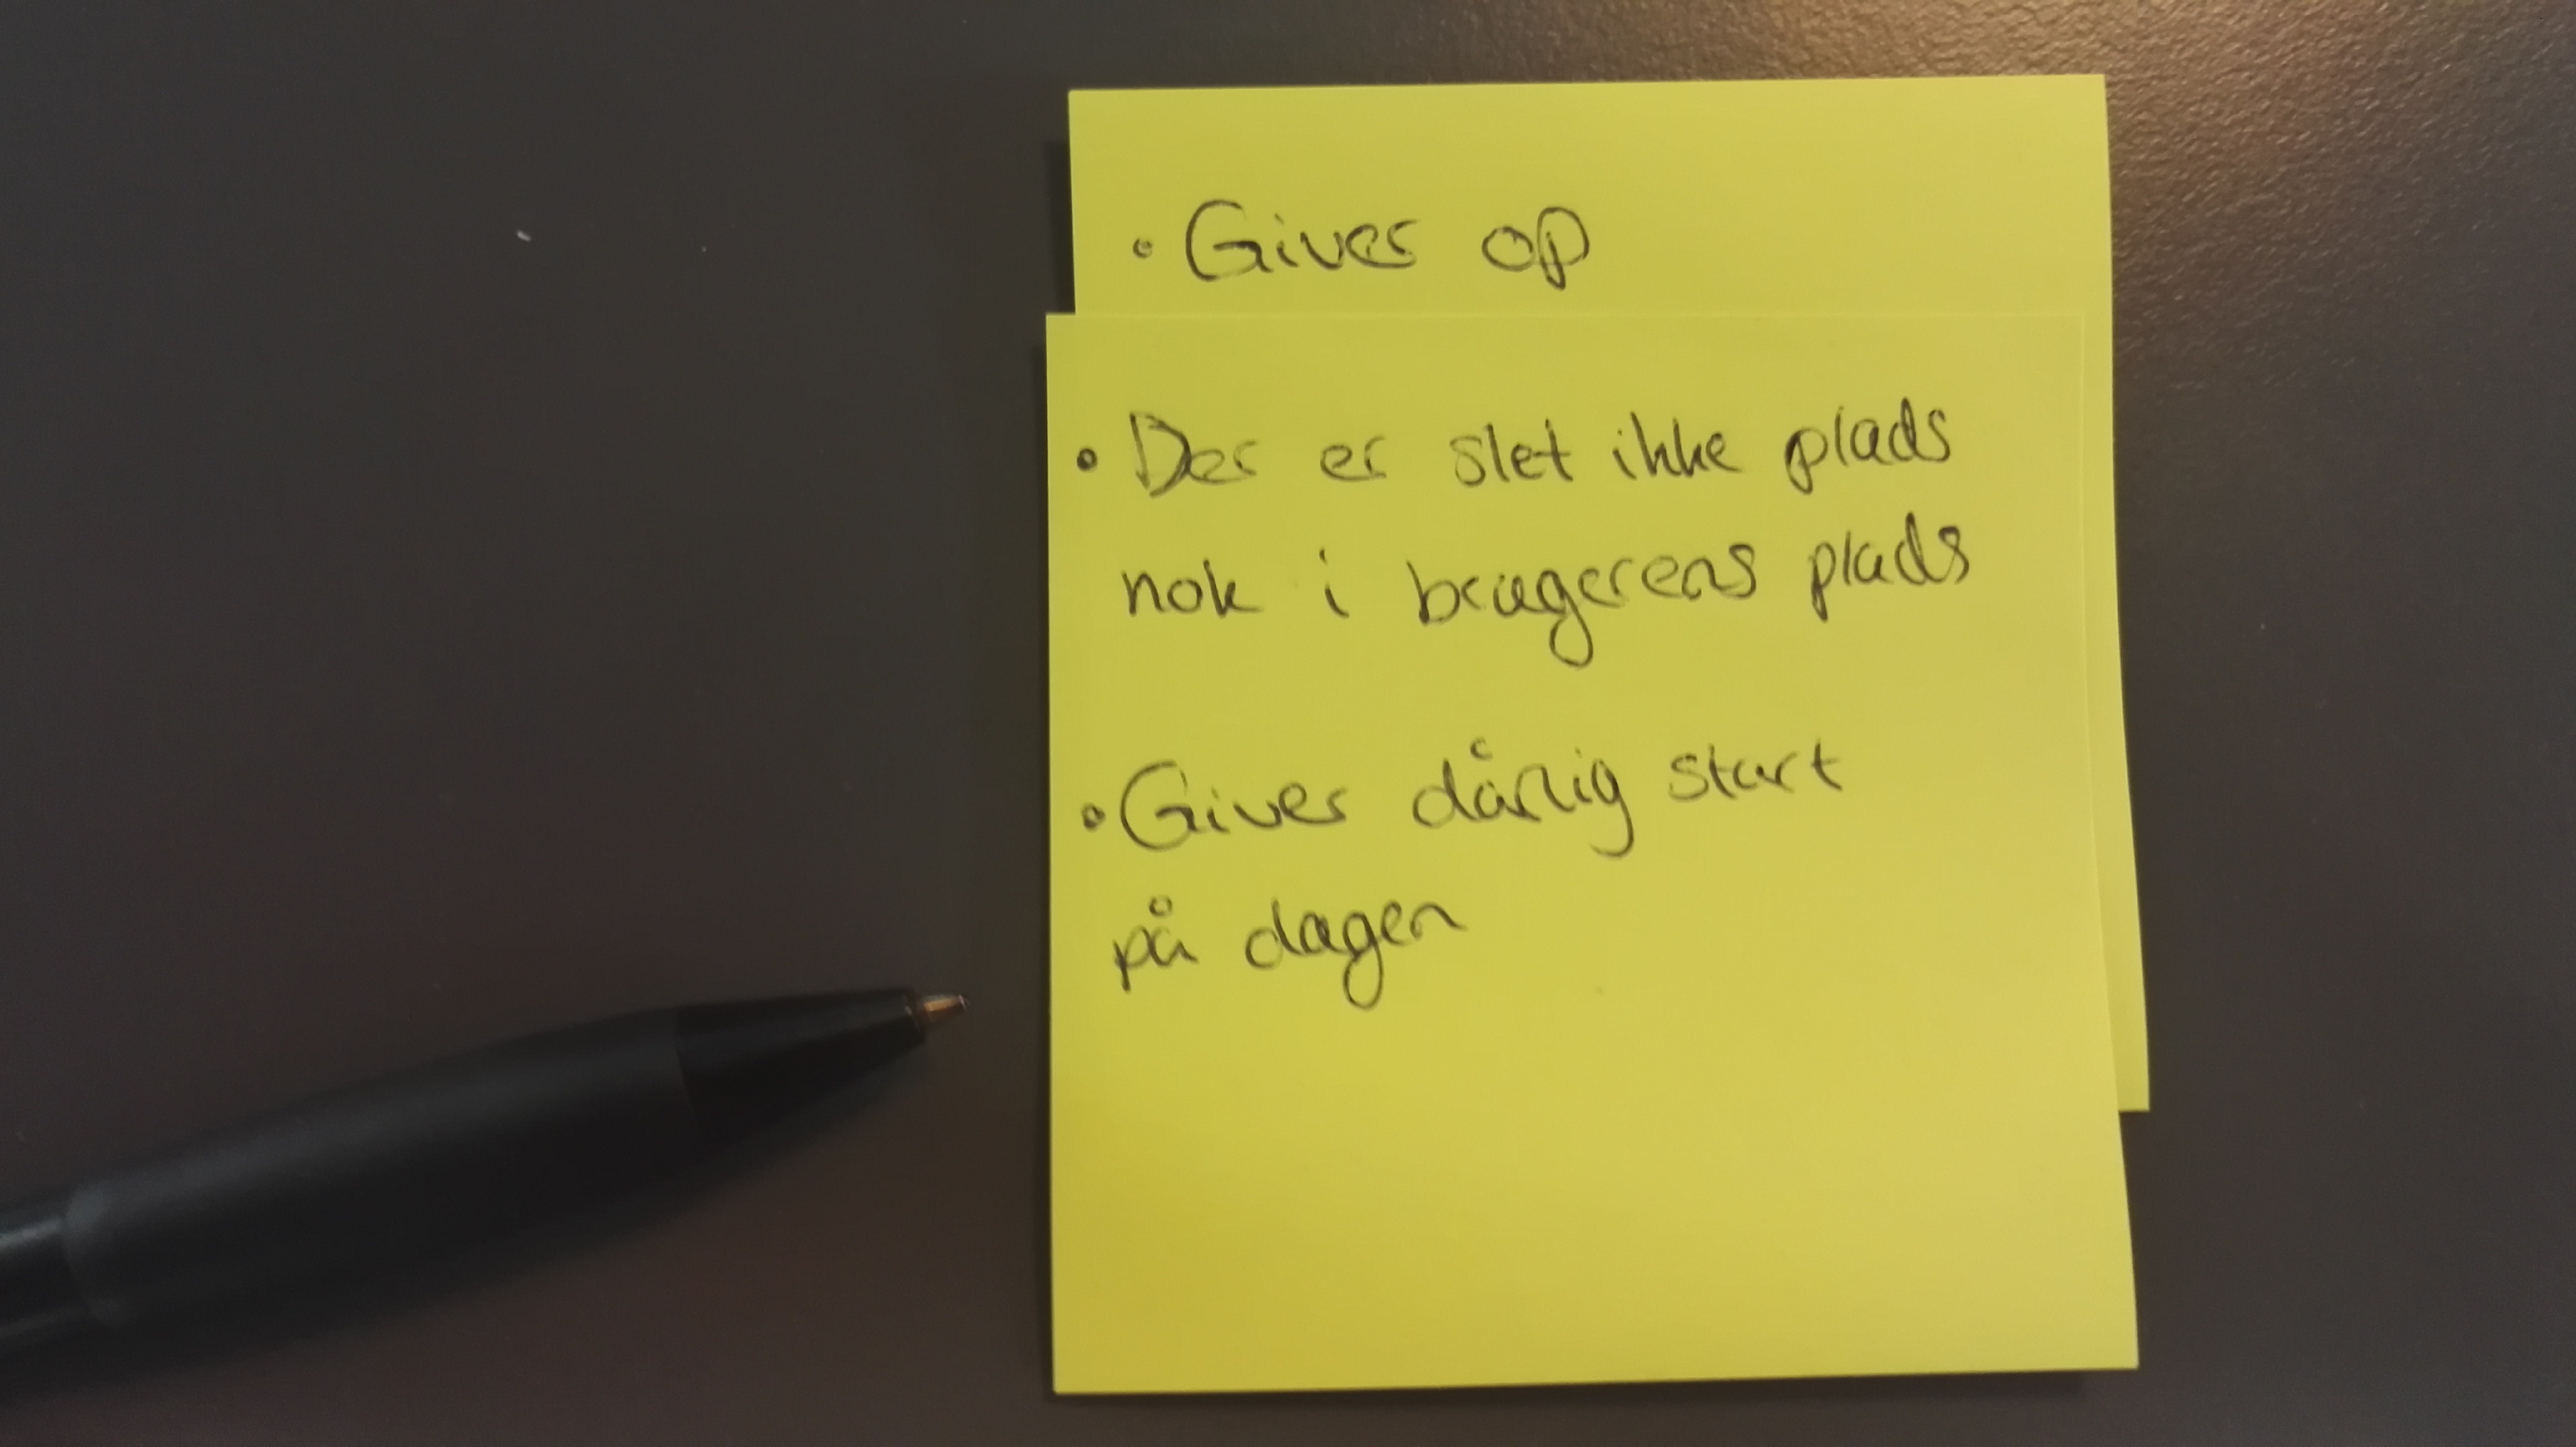 • Giver op
• Der er slet ikke plads
nok i brugerens plads
• Giver dårlig start
på dagen